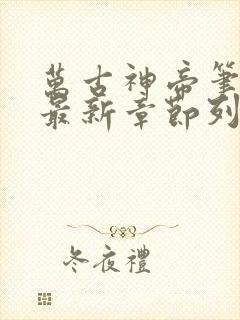 萬古神帝筆
最新章節列
冬夜禮